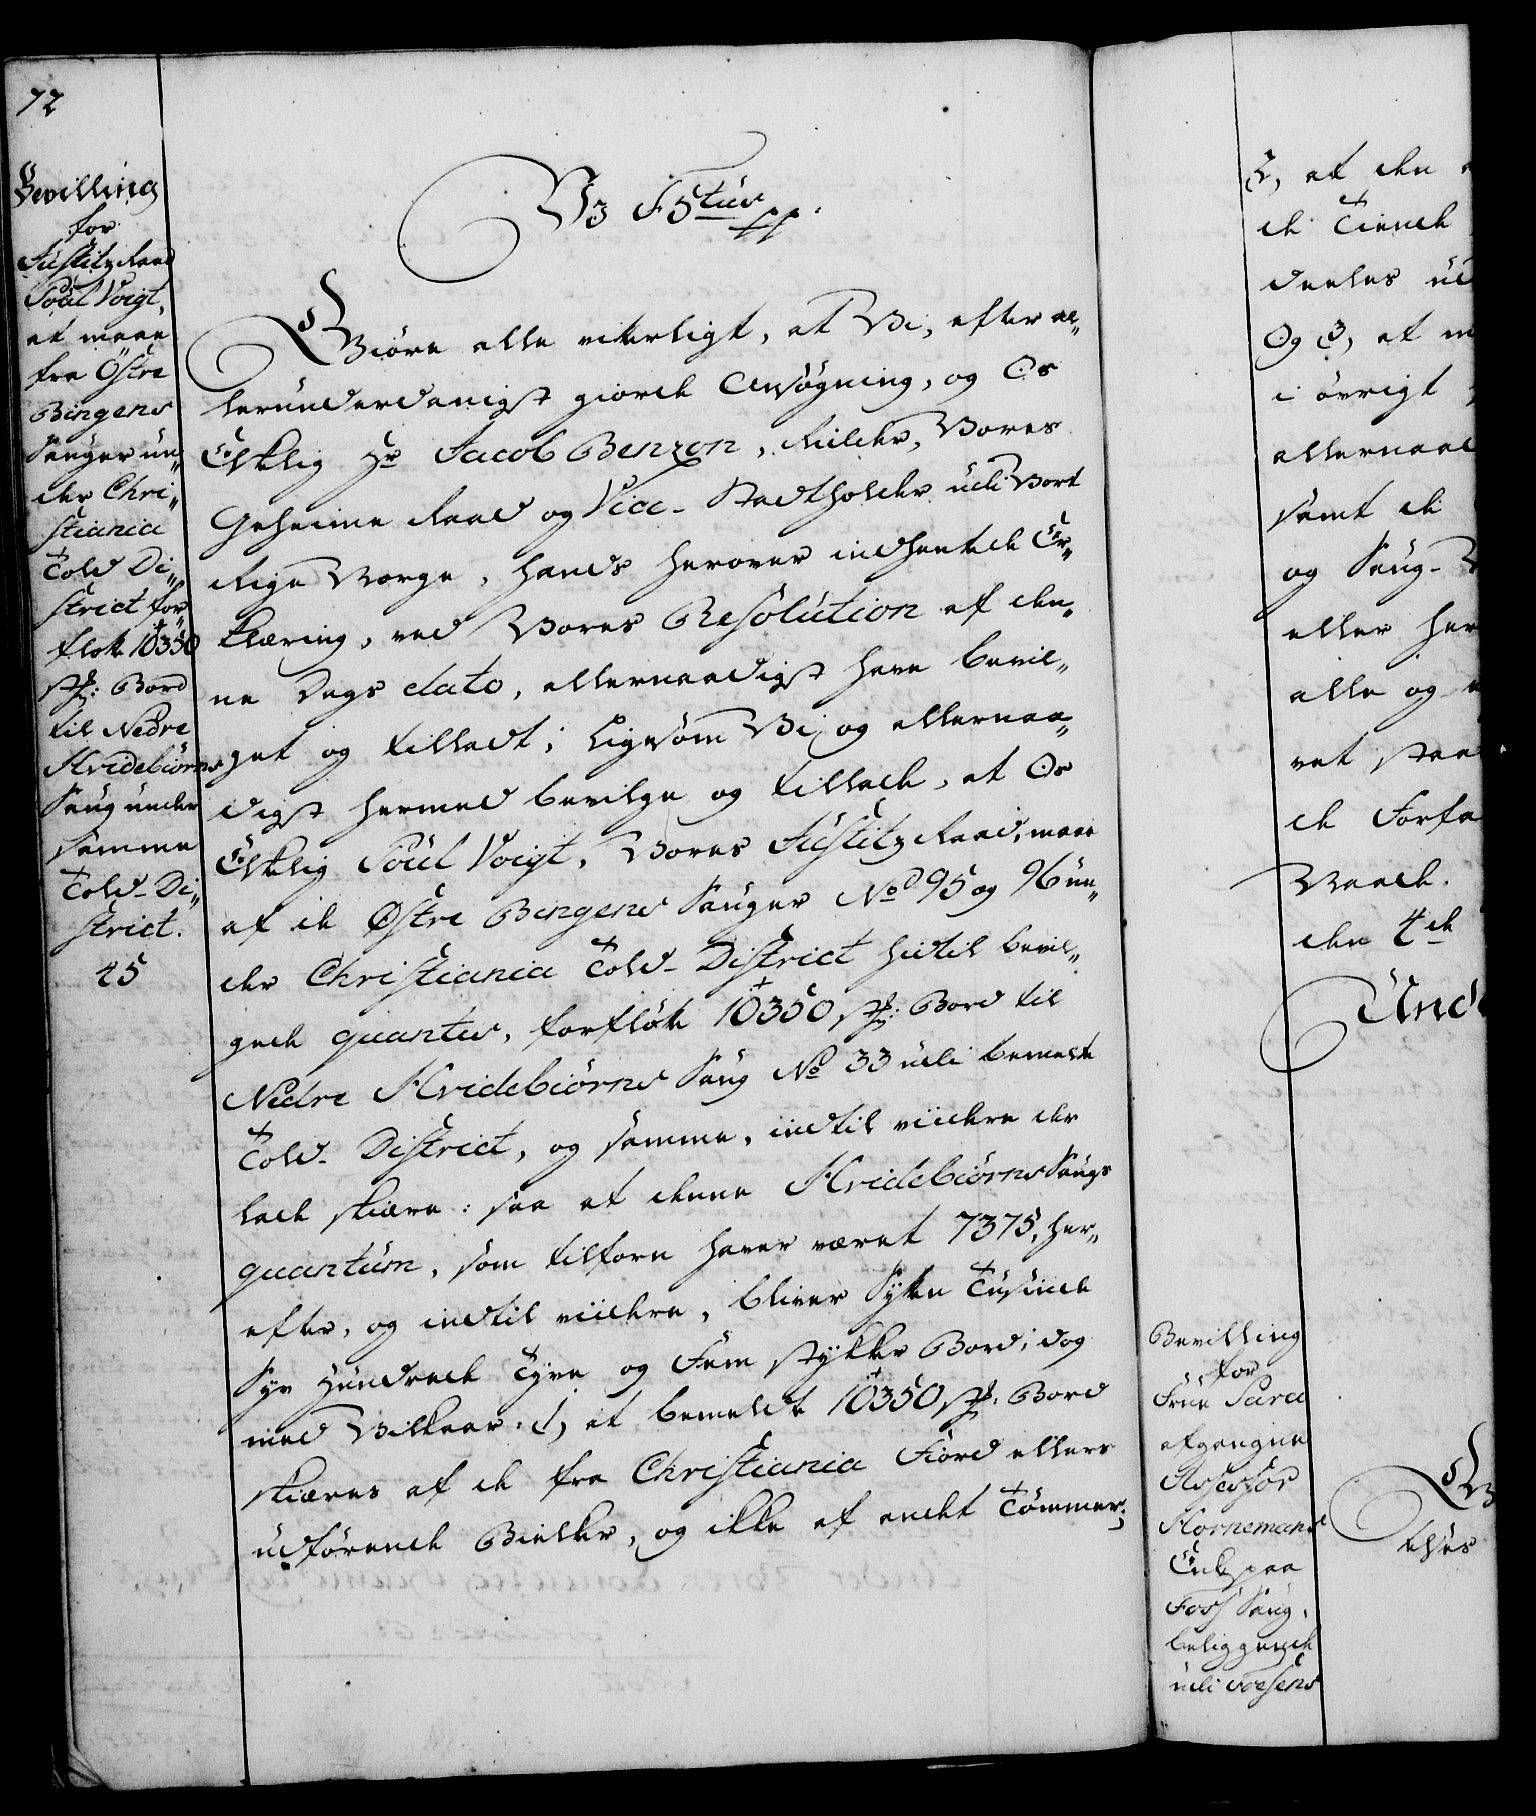 72
Bevilling
for
Justitz Raad
Poul Voigt,
at maae
fra Östre
Bingens
Sauger un„
der Chri„
stiania
Told Di„
strict for„
flÿtte 10350
st: Bord
til Nedre
Hvidebiörns
Saug under
samme
Told-Di„
strict.
45
Vi F 5tus pp.
Giöre alle vitterligt, at Vi, efter al„
lerunderdanigst giorde Ansögning, og Os
Elskelig Hr Jacob Benzon, Ridder, Vores
Geheime Raad og Vice-Stadtholder udi Vort
Rige Norge, hands herover indhentede Er„
klæring, ved Vores Resolution af den„
ne Dags dato, allernaadigst have bevil„
get og tilladt; ligesom Vi og allernaa„
digst hermed bevilge og tillade, at Os
Elskelig Poul Voigt, Vores Justitz Raad, maae
af de Östre Bingens Sauger No 95 og 96 un„
der Christiania Told-District hidtil bevil„
gede quanter, forflötte 10350 st: Bord til
Nedre Hvidebiörns Saug No 33 udi bemelte
Told-District, og samme, indtil viidere der
lade skiære: saa at denne Hvidebiörns Saugs
quantum, som tilforn haver været 7375, her„
efter, og indtil viidere, bliver Sÿtten Tusinde
Sÿv Hundrede Tÿve og Fem stÿkker Bord; dog
med Vilkaar: 1, at bemeldte 10350 st: Bord
skiæres af de fra Christiania Fiord ellers
udförende Bielker, og ikke af andet Tömmer;
2, at den
de Tiende
deeles ud
Og 3, at
i övrigt
allernaad
samt de
og Saug-
eller her
alle og
ret staa
de Forfa
Maade.
den 4de
Und
Bevilling
for
Frue Sara
afgangne
Assessor
Hornemans
Enke paa
Foss Saug,
beliggende
udi Foesens